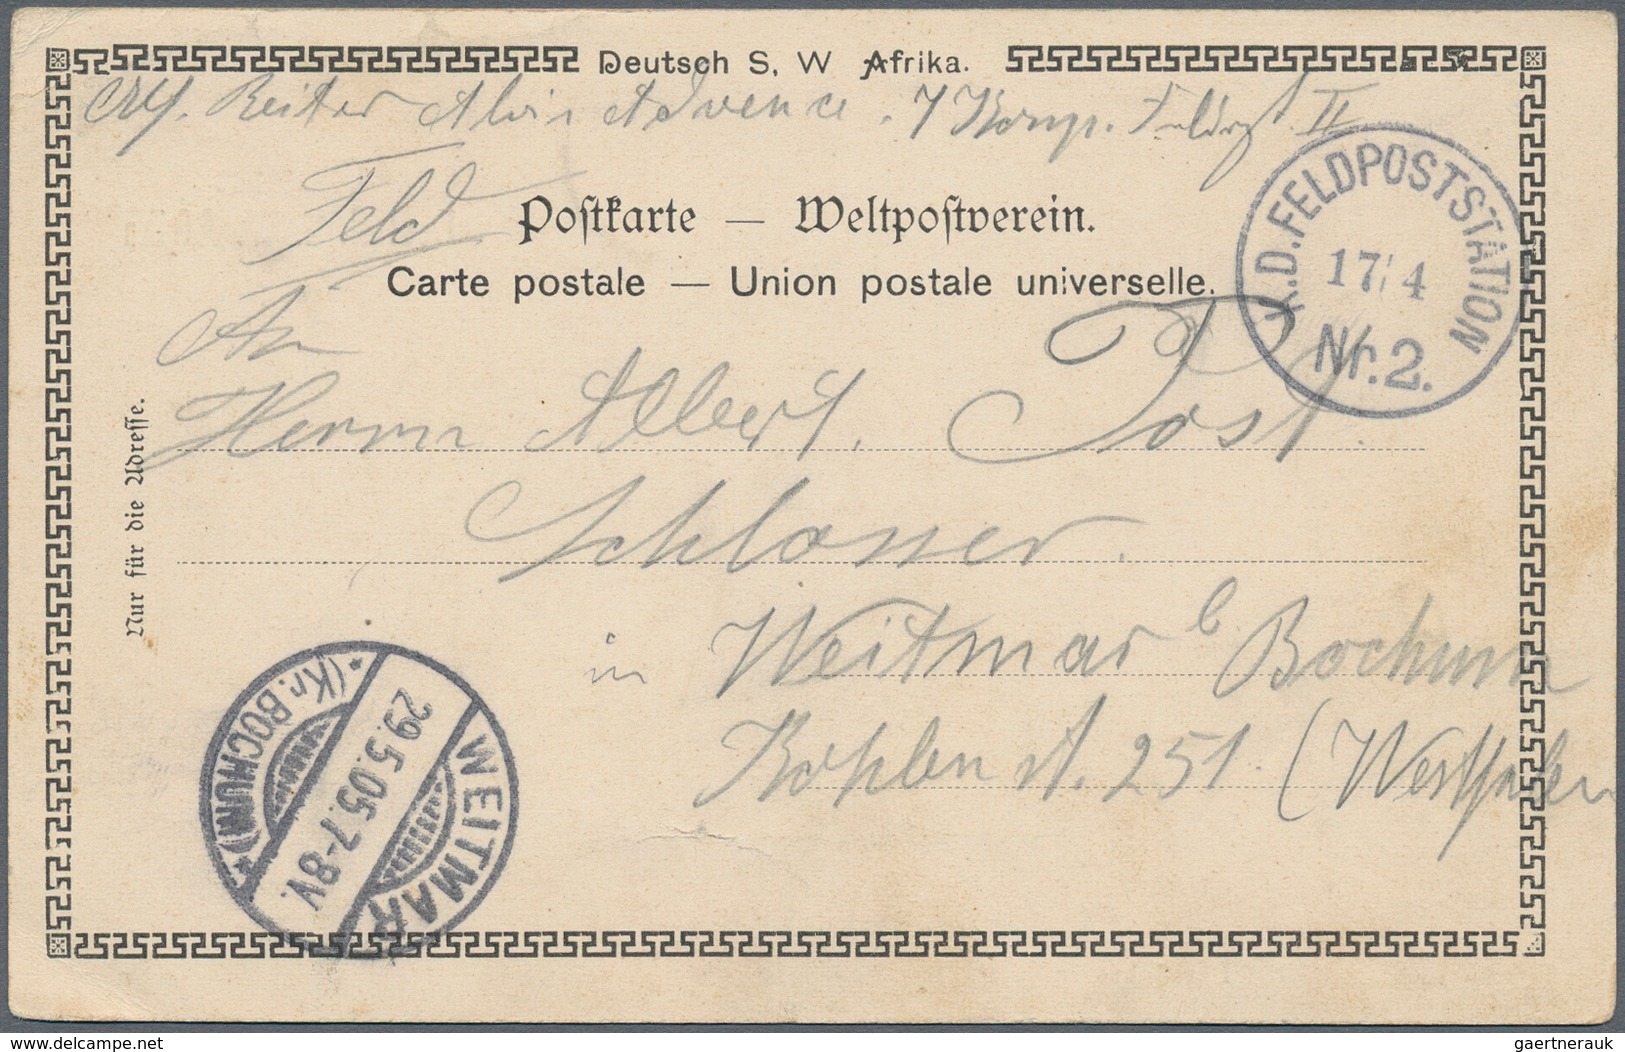 Deutsch S. W Afrika.
Reiter Alois Advena . 7 Komp. Feldrgt. II
Feld
Postkarte — Weltpostverein.
Carte postale — Union postale universelle.
K.D.FELDPOSTSTATION
17/4
Nr.2.
An
Herrn Albert. Post.
Schlosser.
in Weitmar b Bochum
Kohlen st. 251. (Westfalen
Nur für die Adresse.
WEITMAR
29.5.05.7-8V.
*(Kr.BOCHUM)*
www.delcampe.net
gaertnerauk